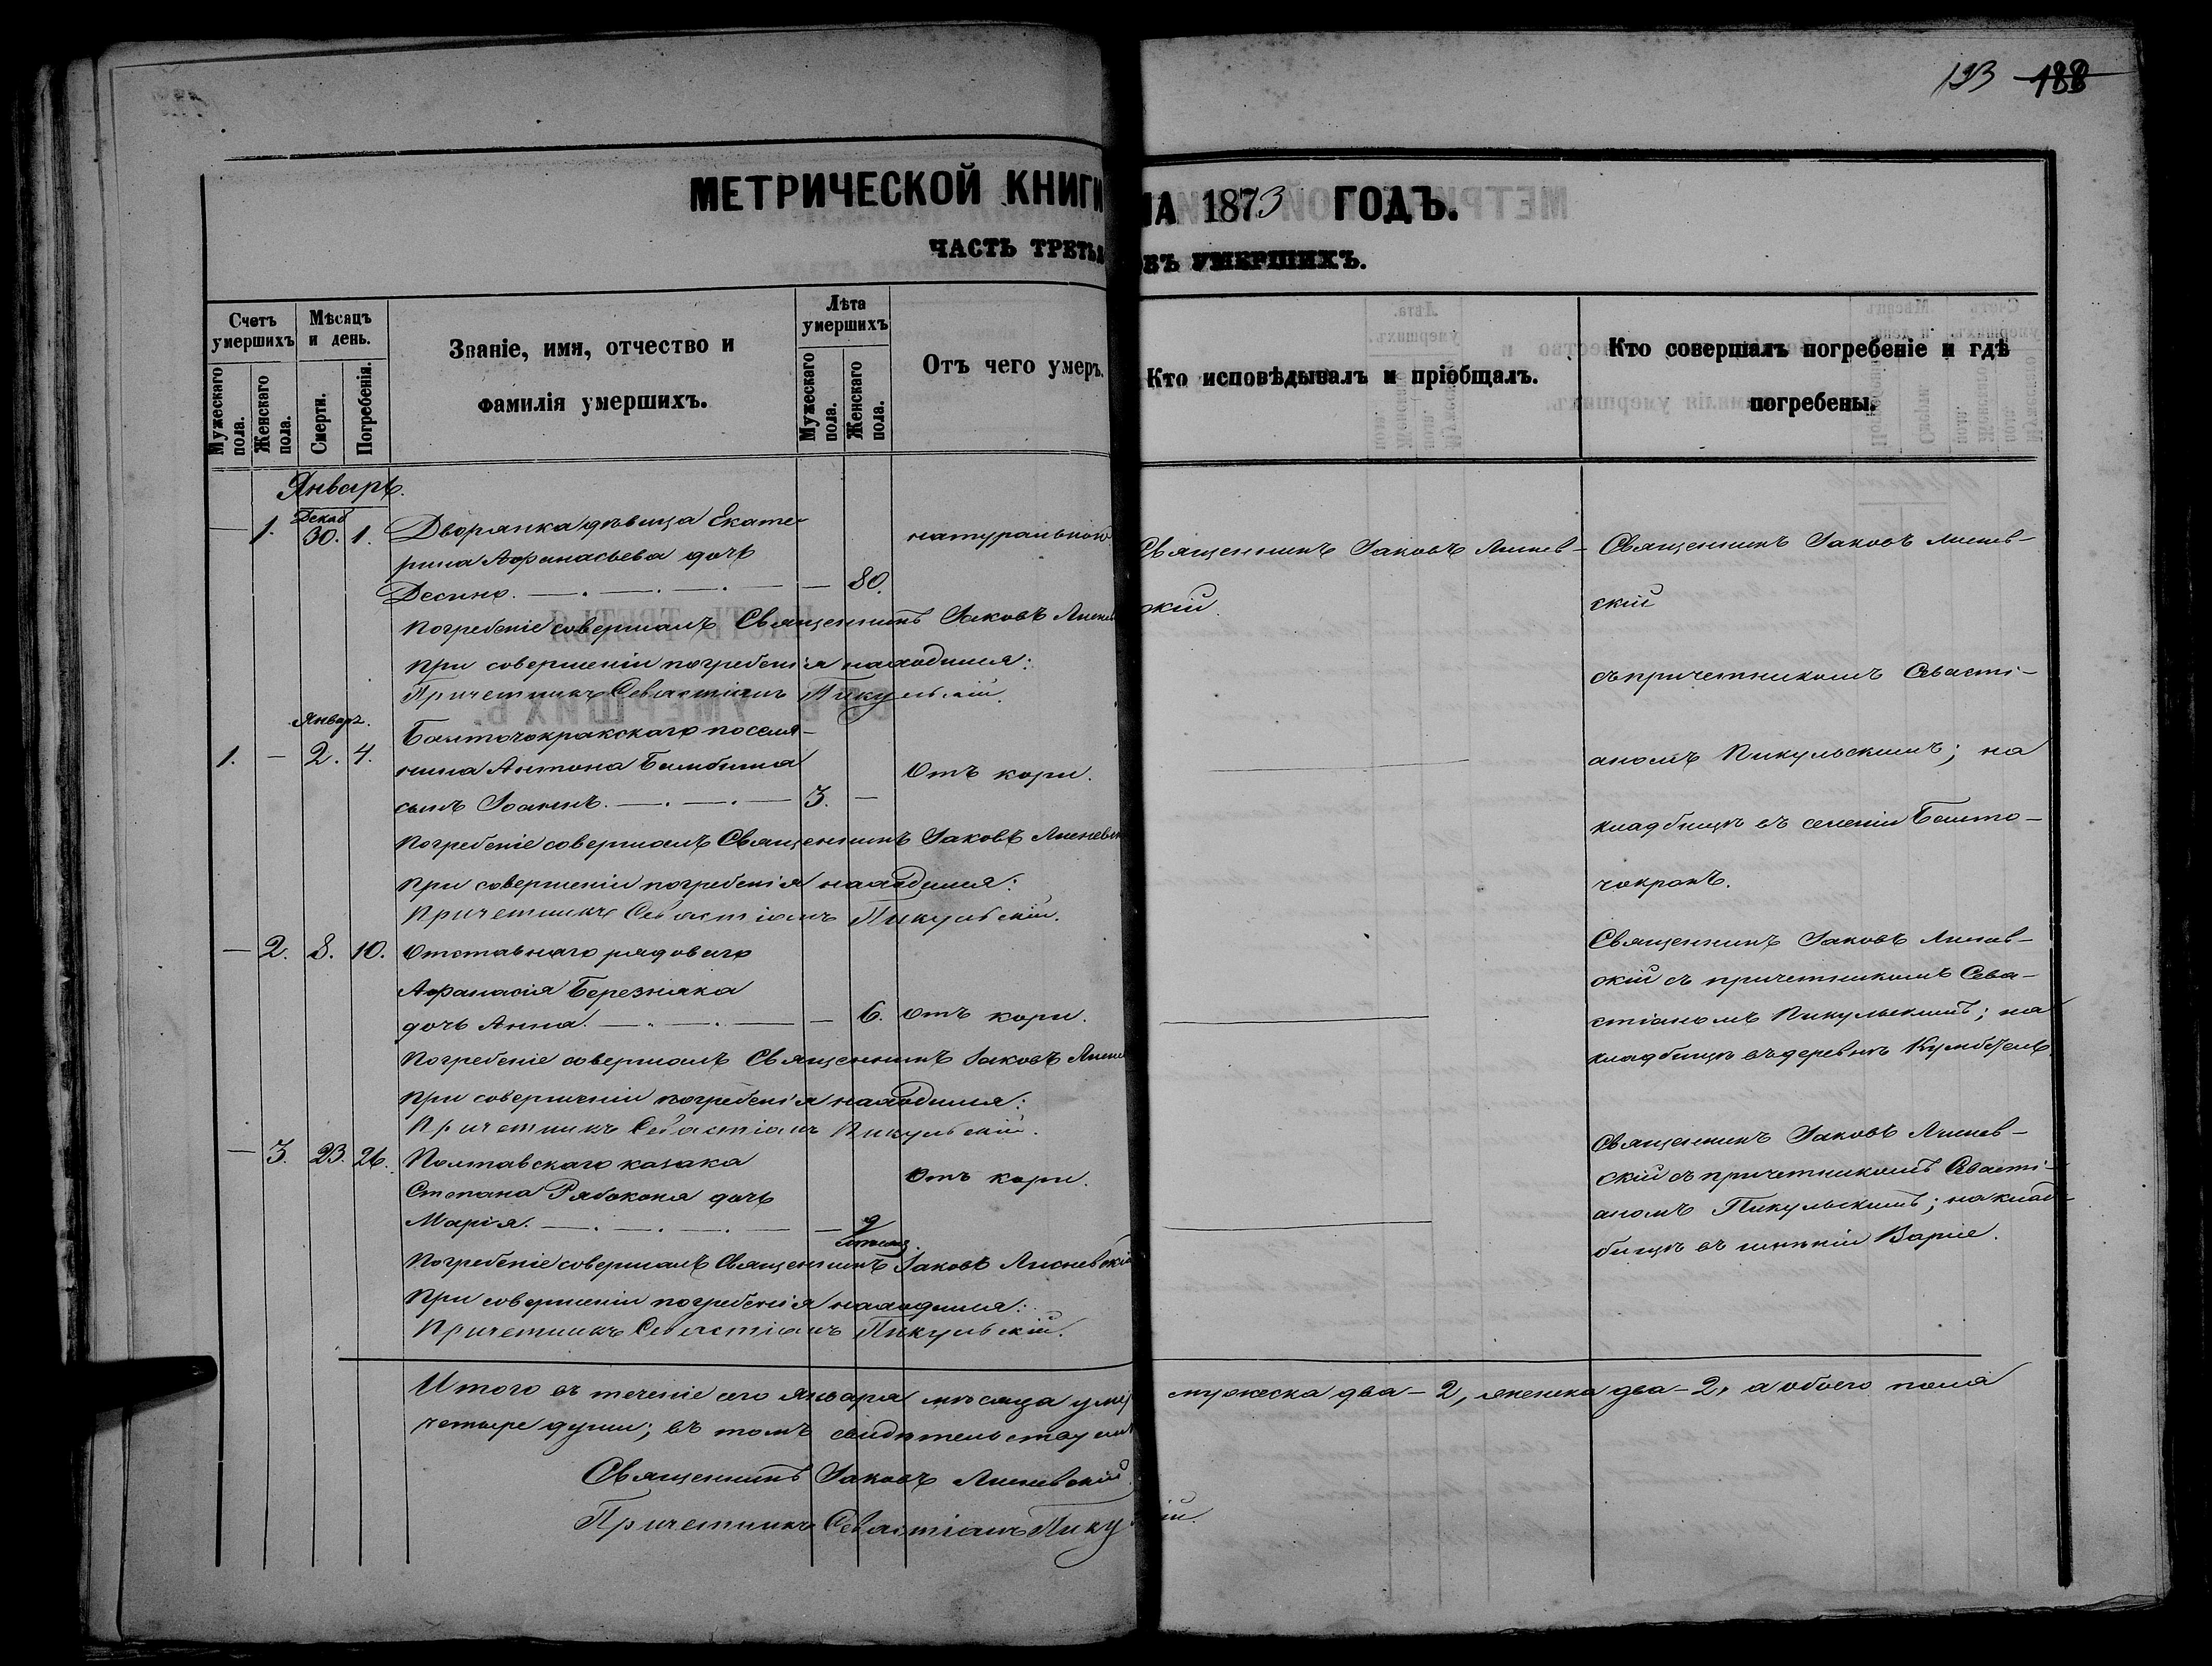 193 188
МЕТРИЧЕСКОЙ КНИГИ НА 1873 ГОДЪ.
ЧАСТЬ ТРЕТЬЯ ОБЪ УМЕРШИХЪ.
Счетъ умершихъ
Мужескаго пола.
Женскаго пола.
Мѣсяцъ и день.
Смерти.
Погребенія.
Званіе, имя, отчество и фамилія умершихъ.
Лѣта умершихъ
Мужескаго пола.
Женскаго пола.
Отъ чего умеръ.
Кто исповѣдывалъ и пріобщалъ.
Кто совершалъ погребеніе и гдѣ погребены.
Январь.
Декаб
— 1. 30. 1. Дворянка дѣвица Екате-
рина Афанасьева дочь
Десино. — 80.
натуральной
Священникъ Іаковъ Лиснев-
скій.
Погребеніе совершалъ Священникъ Іаковъ Лиснев
При совершеніи погребенія находился:
Причетникъ Севастіанъ Пикульскій.
Священникъ Іаковъ Лиснев-
скій
съ причетникомъ Севасті-
аномъ Пикульскимъ; на
кладбищѣ въ селеніи Башто-
чокракъ.
Январ.
1. — 2. 4. Баиточокракскаго поселя-
нина Антона
сынъ Іоаннъ. 3. —
Отъ кори.
Погребеніе совершалъ Священникъ Іаковъ Лисневск
При совершеніи погребенія находился:
Причетникъ Севастіанъ Пикульскій.
— 2. 8. 10. Отставнаго рядоваго
Афанасія Березняка
дочь Анна. — 6. Отъ кори.
Погребеніе совершалъ Священникъ Іаковъ Лисне
При совершеніи погребенія находился:
Причетникъ Севастіанъ Пикульскій.
Священникъ Іаковъ Лиснев-
скій съ причетникомъ Сева-
стіаномъ Пикульскимъ; на
кладбищѣ въ деревнѣ
— 3. 23. 26. Полтавскаго казака
Степана Рябоконя дочь
Марія. — 9
мѣсяц.
Отъ кори.
Погребеніе совершалъ Священникъ Іаковъ Лисневскій
При совершеніи погребенія находился:
Причетникъ Севастіанъ Пикульскій.
Священникъ Іаковъ Лиснев-
скій съ причетникомъ Севасті-
аномъ Пикульскимъ; на клад-
бищѣ въ имѣніи
Итого въ теченіе сего Января мѣсяца умер мужеска два — 2, женска два — 2, а обоего пола
четыре души; въ томъ свидѣтельствуемъ
Священникъ Іаковъ Лисневскій.
Причетникъ Севастіанъ Пику ій.